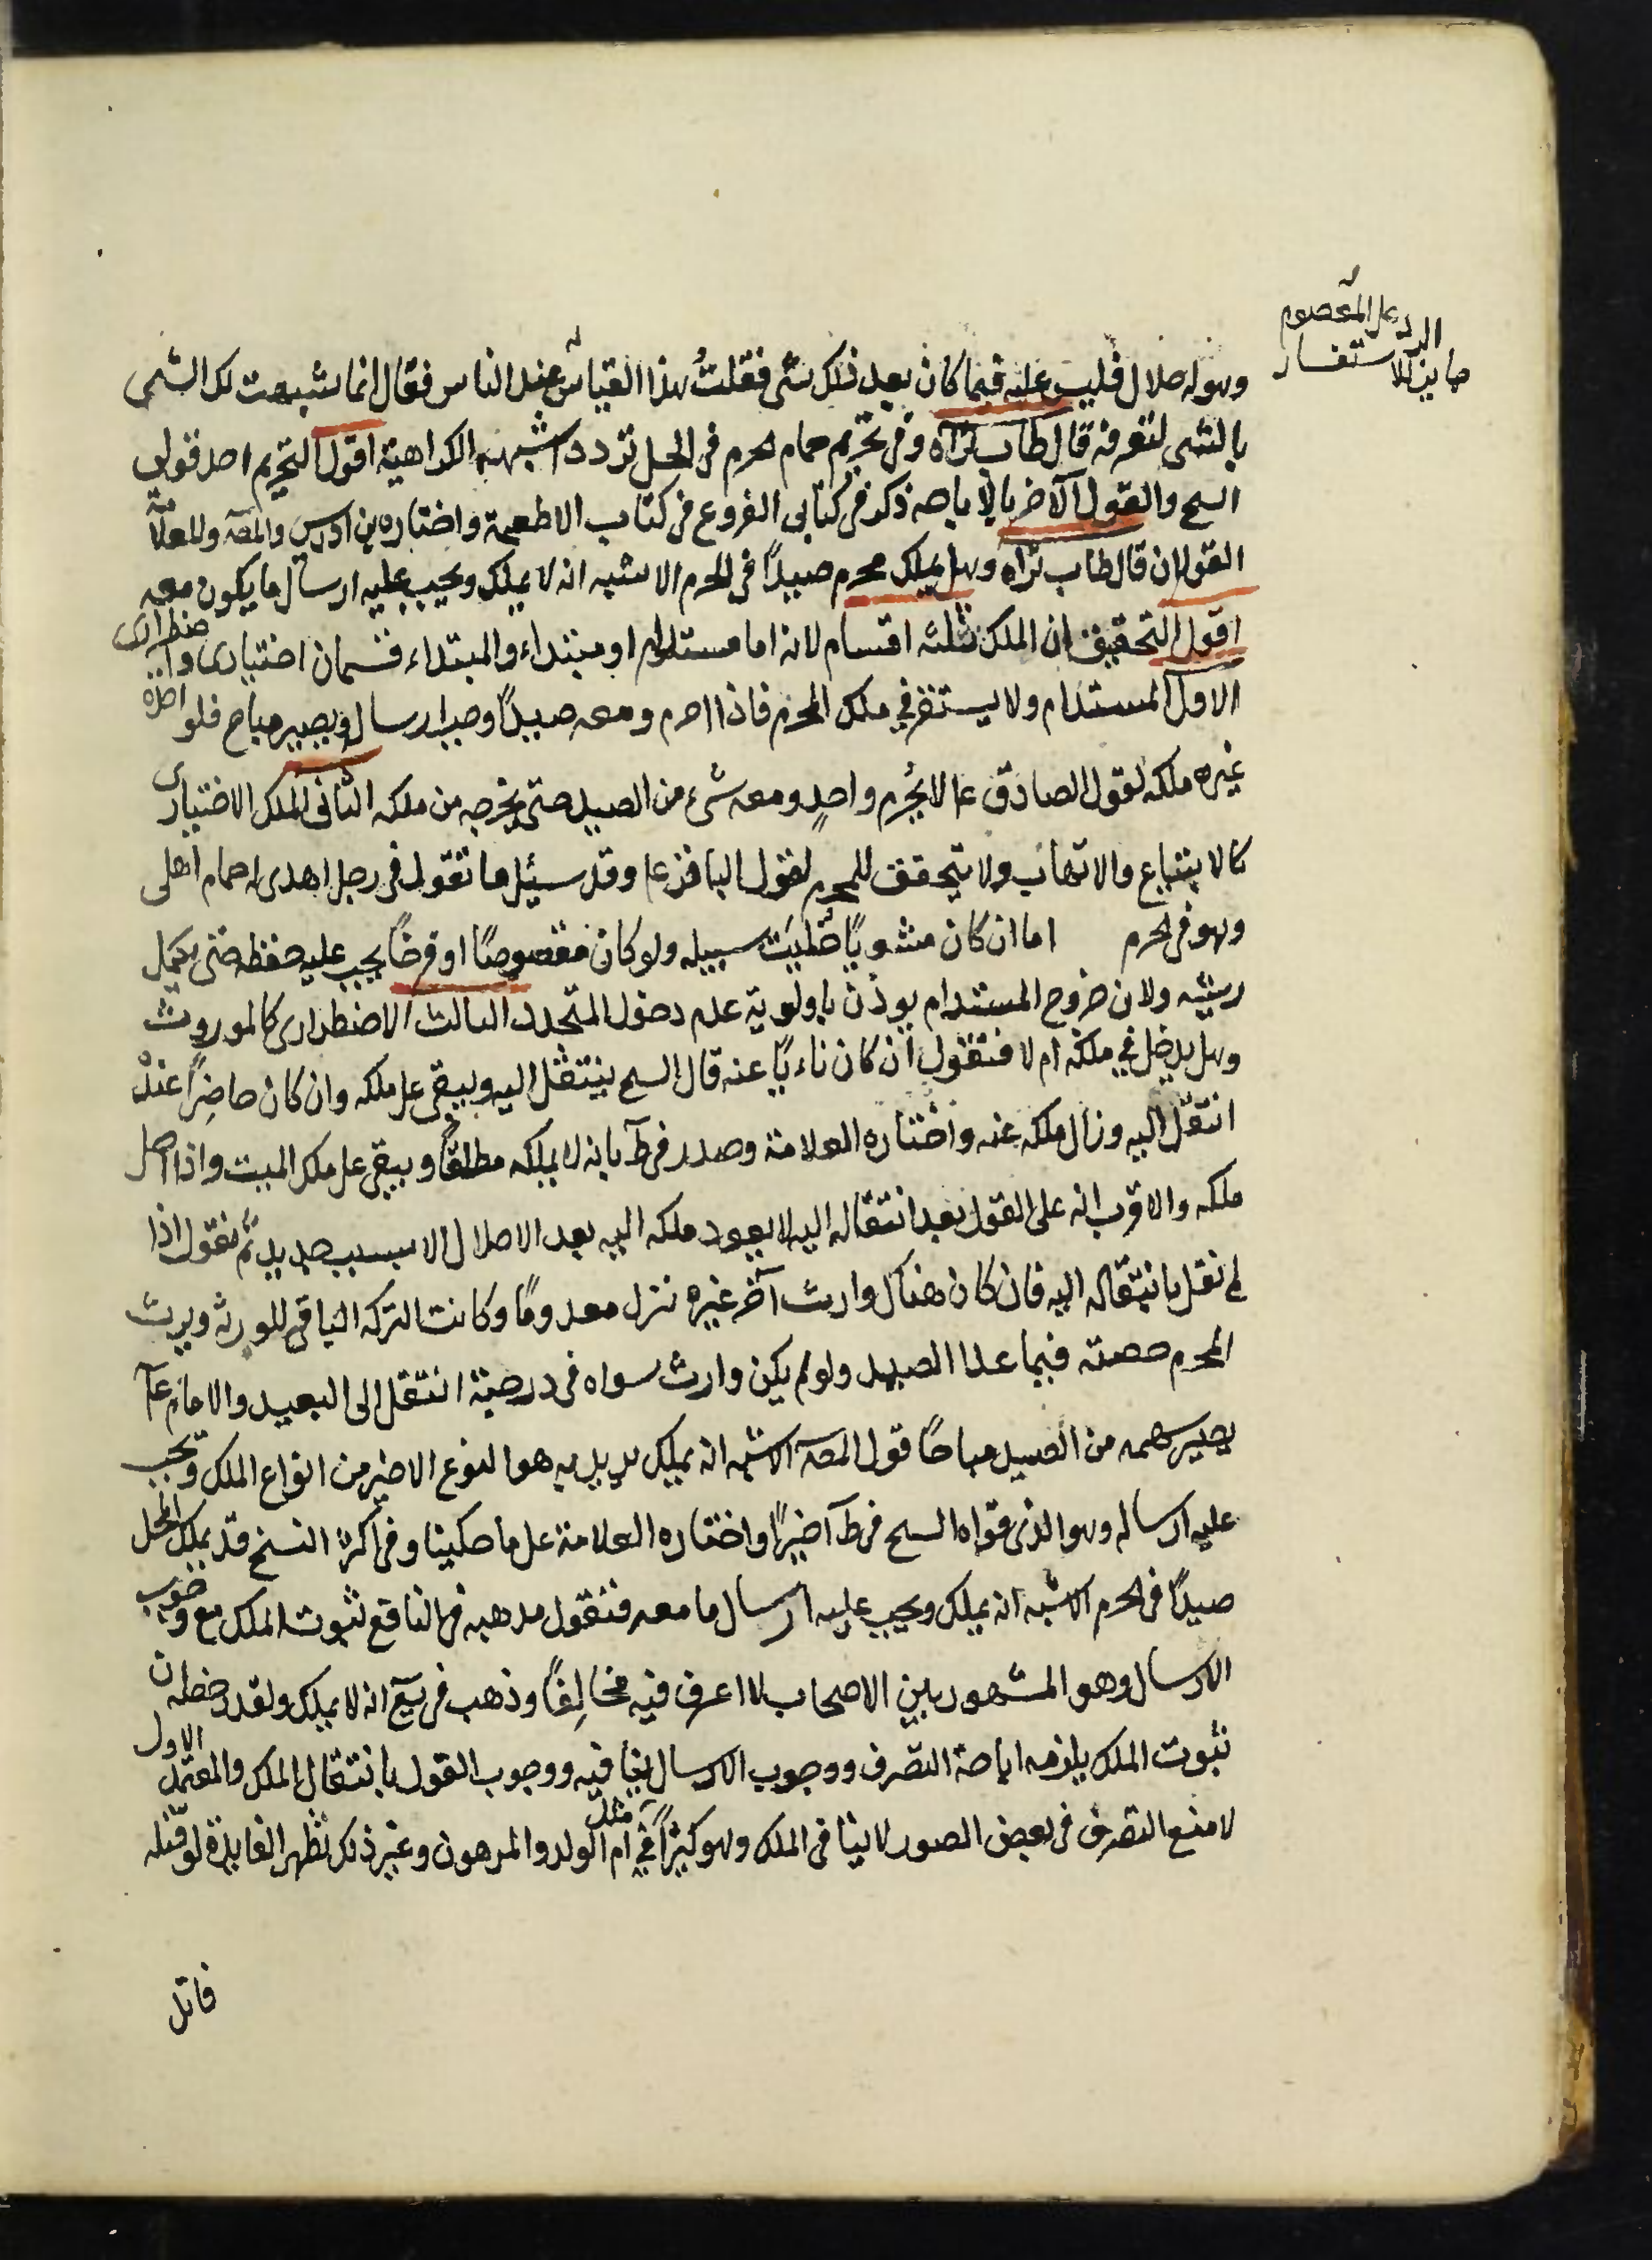 الرد على المعصوم
جايز للاستفسار
وهو له حلال فليس عليه فيما كان بعد ذلك شى فقلتُ هذا القياس عند الناس فقال انما شبهت لك الشى
بالشى لتعرفه قال طاب ثراه وفى تحريم حمام الحرم فى الحل تردد اشبهه الكراهية اقول التحريم احد قولى
الشيخ والقول الآخر بالاباحه ذكره فى كتابى الفروع فى كتاب الاطعمة واختاره بن ادريس والمصَ وللعلامة
القولان قال طاب ثراه وهل يملك محرم صيدًا فى الحرم الاشبه انه لا يملك ويجب عليه ارسال ما يكون معه
اقول التحقيق ان الملك ثلثه اقسام لانه اما مستدام او مبتداء والمبتداء قسمان اختيارى واضطرارى
الاول المستدام ولا يستقر فى ملك المحرم فاذا احرم ومعه صيدًا وجب ارساله ويصير مباح فلو اخذه
غيره ملكه لقول الصادق عا لا يُحرِم واحدٍ ومعه شىء من الصيد حتى يخرجه من ملكه الثانى الملك الاختيارى
كالابتياع والاتهاب ولا يتحقق للمحرم لقول الباقر عا وقد سئل ما تقول فى رجل اهدى له حمام اهلى
وهو فى الحرم اما ان كان مستويًا خلّيت سبيله ولو كان مقصوصًا او فرخًا يجب عليه حفظه حتى يكمل
ريشه ولان خروج المستدام يوذن باولوية عدم دخول المتجدد الثالث الاضطرارى كالموروث
وهل يدخل فى ملكه ام لا فنقول ان كان ناءيًا عنه قال الشيخ ينتقل اليه ويبقى على ملكه وان كان حاضِرًا عنده
انتقل اليه وزال ملكه عنه واختاره العلامة وصدر فى ط بانه لا يملكه مطلقًا ويبقى على ملك الميت واذا احل
ملكه والاقرب انه على القول بعد انتقاله اليه لا يعود ملكه اليه بعد الاحلال الا بسبب جديد ثم نقول اذا
لم نقل بانتقاله اليه فان كان هناك وارث آخر غيره نزل معدومًا وكانت التركه الباقى للورثه ويرث
المحرم حصته فيما عدا الصيد ولو لم يكن وارث سواه فى درجتة انتقل الى البعيد والامام عا
يصير سهمه من الصيد مباحًا قول المصَ الاشبه انه يملك يريد به هوا لنوع الاخير من انواع الملك ويجب
عليه ارساله وهو الذى قواه الشيخ فى ط اخيرًا واختاره العلامة على ما حكينا وفى اكثر النسخ قد يملك المحل
صيدًا فى الحرم الاشبه انه يملك ويجب عليه ارسال ما معه فنقول مذهبه فى النافع ثبوت الملك مع وجوب
الارسال وهو المشهور بين الاصحاب لا اعرف فيه مخالِفًا وذهب فى يع انه لا يملك ولقد
ثبوت الملك يلزمه اباحة التصرف ووجوب الارسال ينافيه ووجوب القول بانتقال الملك والمعتمد الاول
لا منع التصرف فى بعض الصور لا ينافى الملك وهو كثيرًا فى مثل ام الولد والمرهون وغير ذلك تظهر الفايدة لو قتله
قاتل